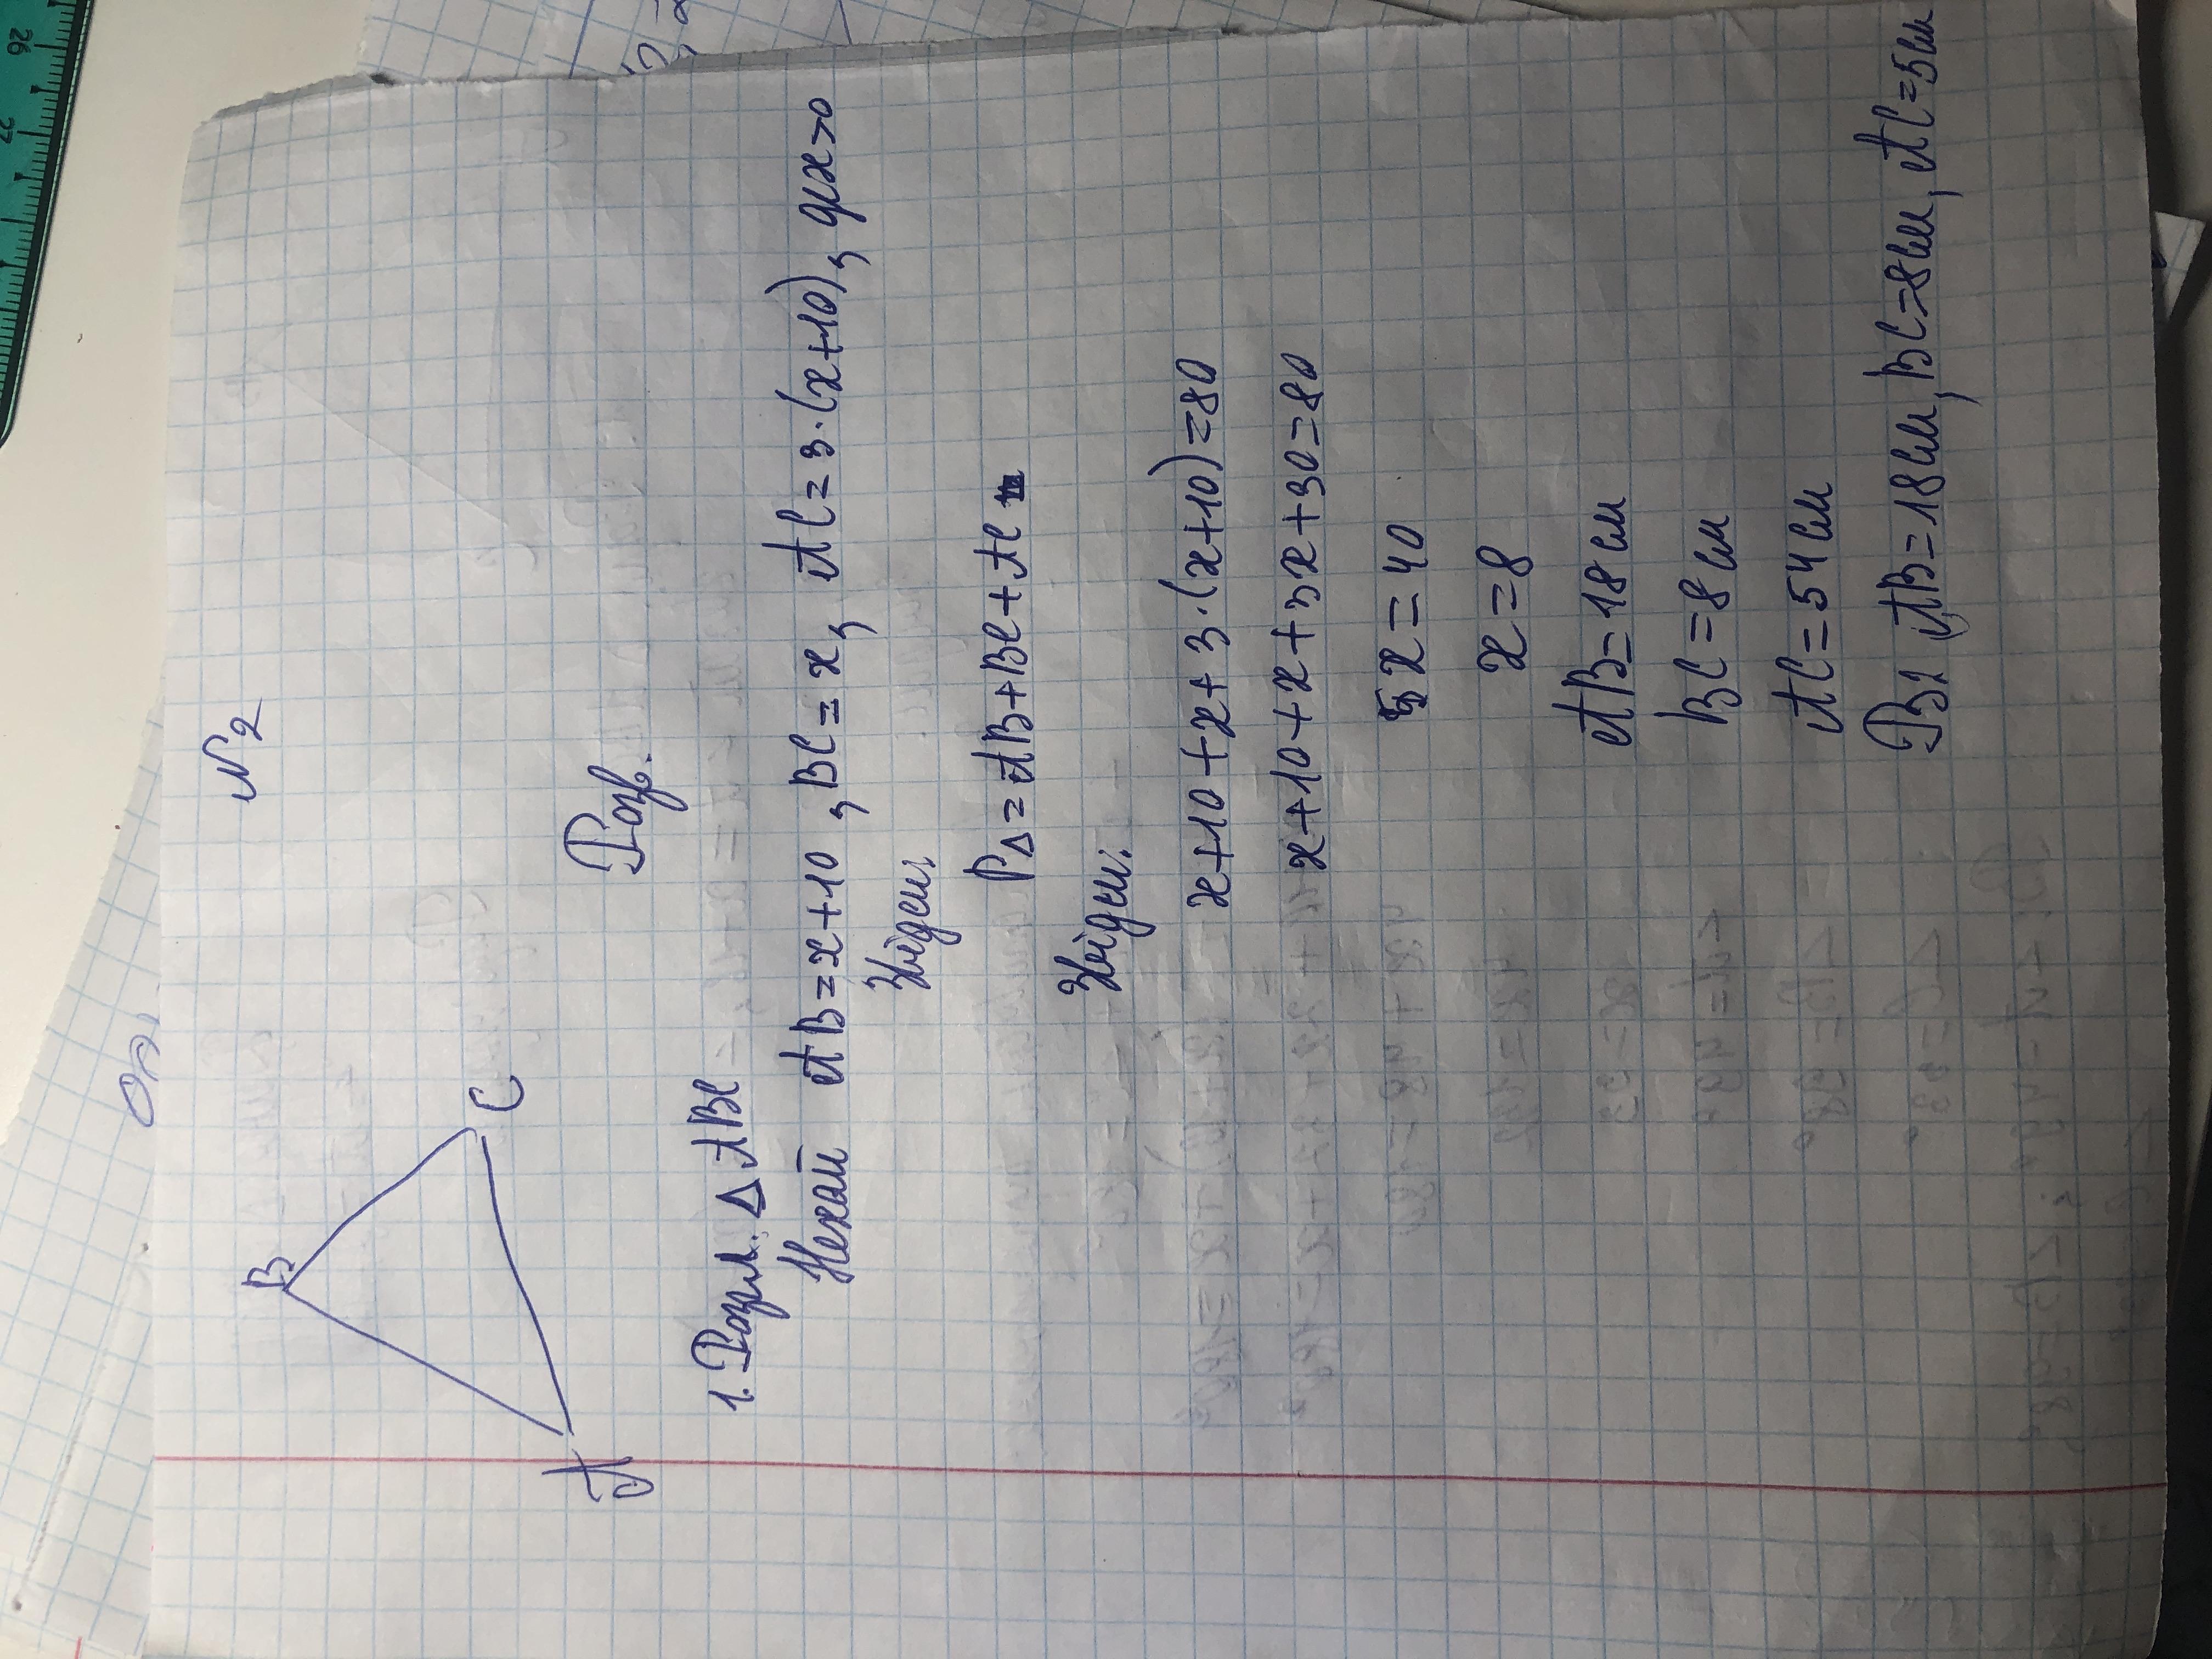 N2
B
C
A
Розв.
1. Розгл. Δ ABC
Нехай AB=x+10, BC=x, AC=3·(x+10), де x>0
Звідси:
PΔ=AB+BC+AC
Звідси:
x+10+x+3·(x+10)=80
x+10+x+3x+30=80
5x=40
x=8
AB=18 см
BC=8 см
AC=54 см
AB=18см, BC=8см, AC=5см
26
27